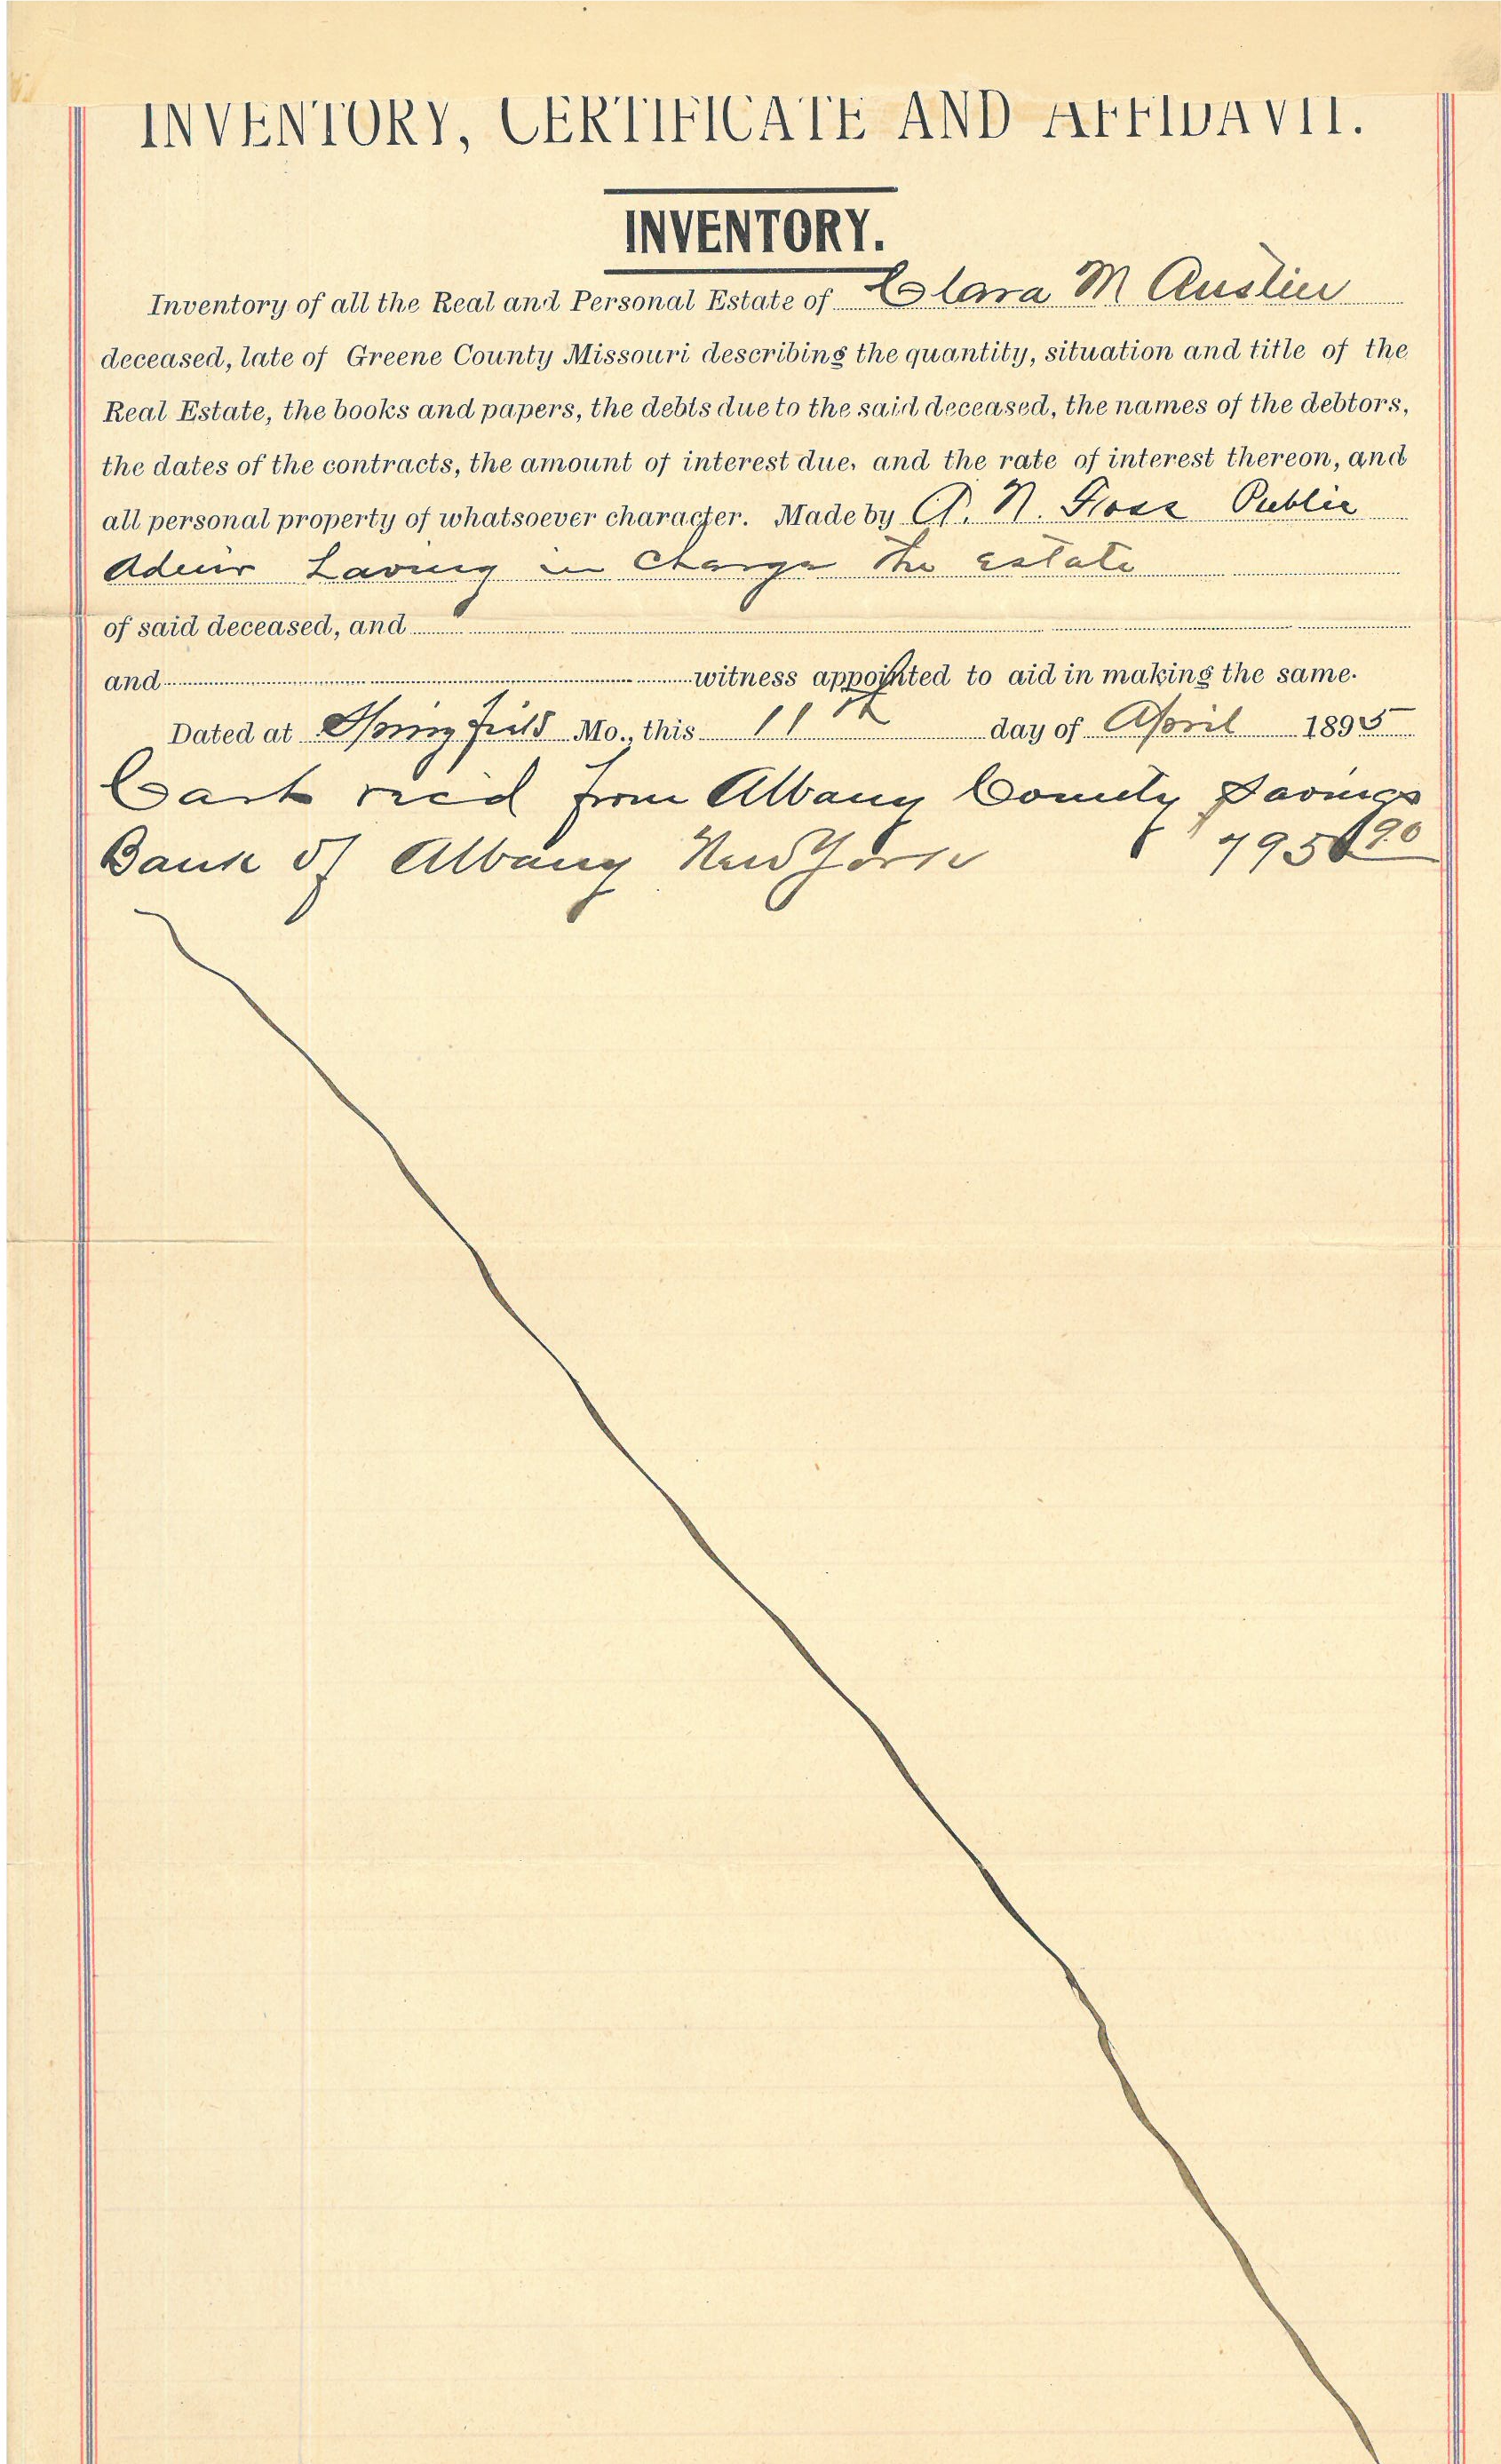 INVENTORY, CERTIFICATE AND AFFIDAVIT.
INVENTORY.
Inventory of all the Real and Personal Estate of Clara M Austin
deceased, late of Greene County Missouri describing the quantity, situation and title of the
Real Estate, the books and papers, the debts due to the said deceased, the names of the debtors,
the dates of the contracts, the amount of interest due, and the rate of interest thereon, and
all personal property of whatsoever character. Made by N. Public
Admr having in charge the estate
of said deceased, and
and witness appointed to aid in making the same.
Dated at Springfield Mo., this 11th day of April 1895
Cash recd from Albany County Savings
Bank of Albany New York